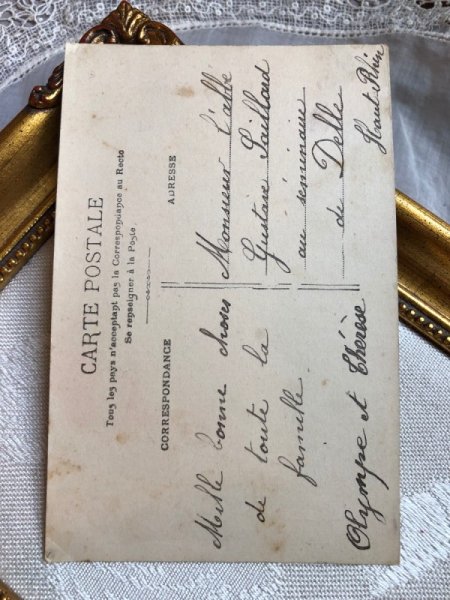 CARTE POSTALE
Tous les pays n'acceptent pas la Correspondance au Recto
Se renseigner à la Poste
CORRESPONDANCE
Mille bonne choses
de toute la
famille.
Olympe et Thérèse
ADRESSE
Monsieur l'abbé
Gustave Saillard
au séminaire
de Delle
Haut-Rhin